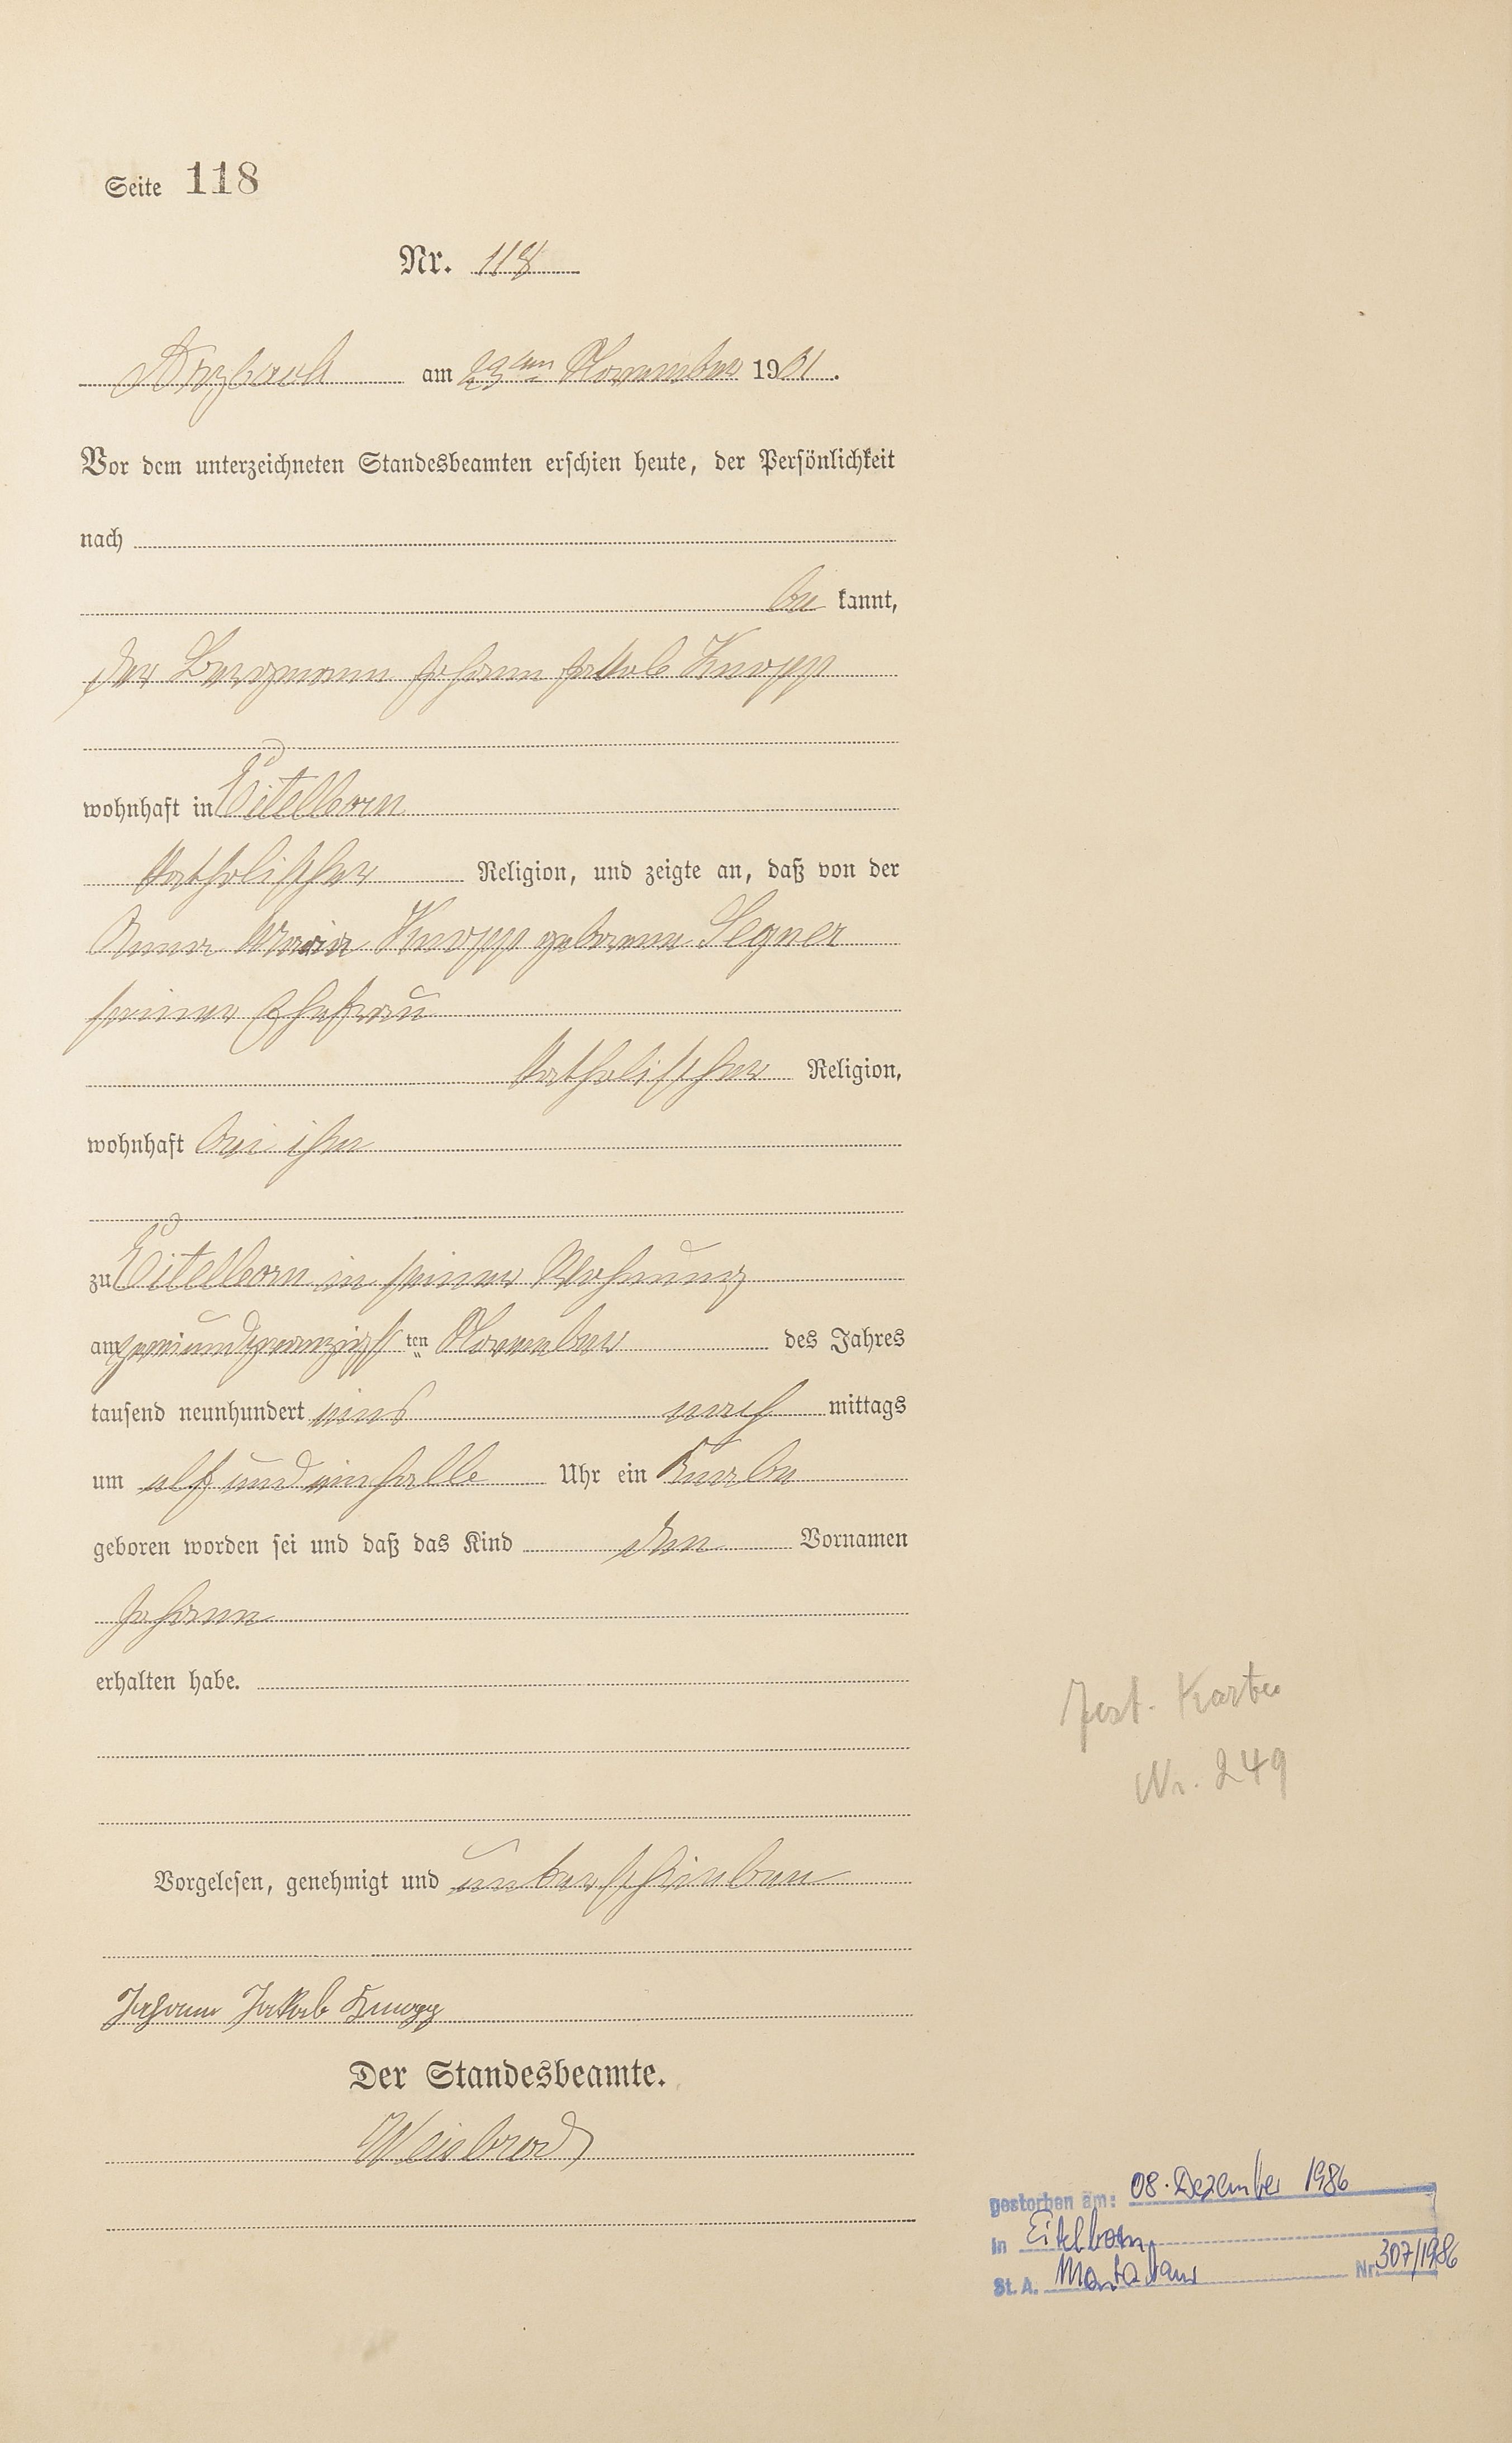 Seite 118
Nr. 118
Arzbach am 23ten November 1901.
Vor dem unterzeichneten Standesbeamten erschien heute, der Persönlichkeit
nach
be kannt,
der Bergmann Johann Jakob Knopp
wohnhaft in Eitelborn
katholischer Religion, und zeigte an, daß von der
Anna Maria Knopp geborene Segner
seiner Ehefrau
katholischer Religion,
wohnhaft bei ihm
zu Eitelborn in seiner Wohnung
am zweiundzwanzigsten November des Jahres
tausend neunhundert eins nach mittags
um elf und einhalb Uhr ein Knabe
geboren worden sei und daß das Kind den Vornamen
Johann
erhalten habe.
Vorgelesen, genehmigt und unterschrieben
Johann Jakob Knopp
Der Standesbeamte.
Weisbrod
Karte
Nr. 249
gestorben am: 08. Dezember 1986
in Eitelborn
St. A. Montabaur Nr. 307/1986